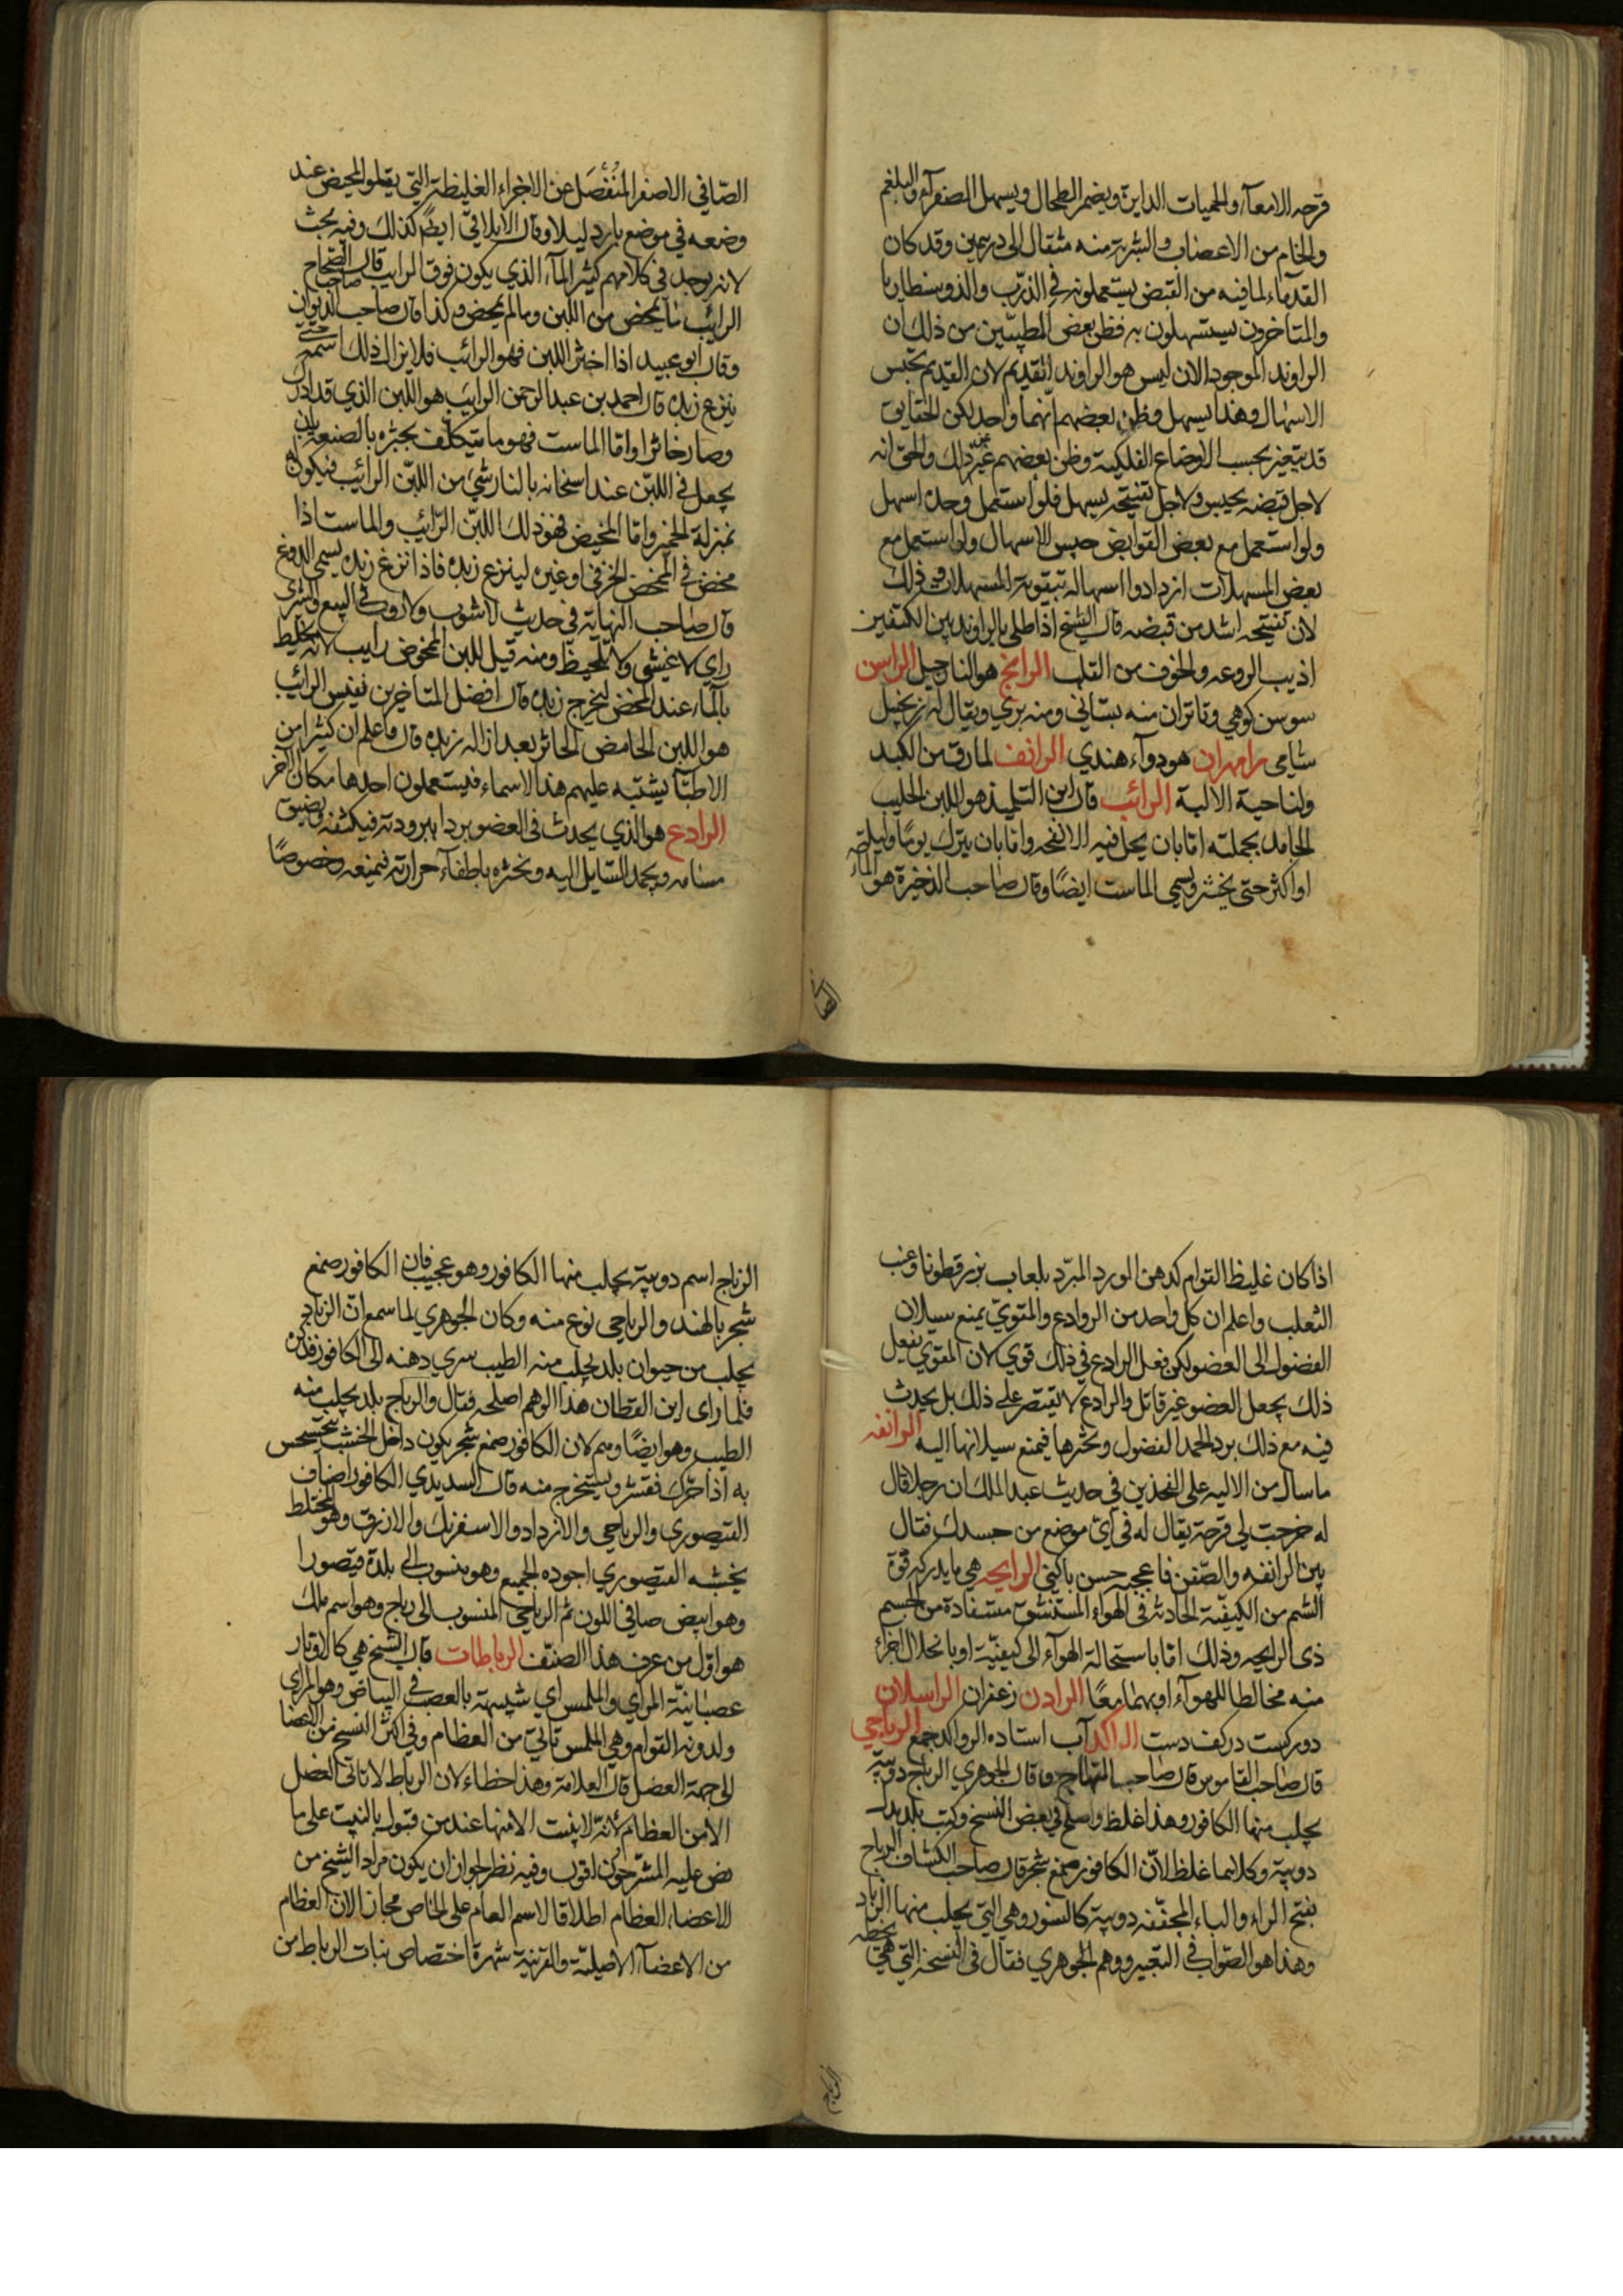 قرحه الامعآء والحميات الداىرة ويضمر الطحال ويسهل الصفرآء والبلغم
والخام من الاعصاب والشربة منه مثقال الى درهمين وقد كان
القدمآء لما فيه من القبض يستعملونه فى الذرب والذوسنطاريا
والمتاخرون يستسهلون به فظن بعض المطببين من ذلك ان
الراوند الموجود الان ليس هو الراوند القديم لان القديم يحبس
الاسهال وهذا يسهل وظن بعضهم انهما واحد لكن الحقايق
قد يتغير بحسب الاوضاع الفلكية وظن بعضهم غير ذلك والحق انه
لاجل قبضه يحبس ولاجل تفتيحه يسهل فلو استعمل وحده اسهل
ولو استعمل مع بعض القوابض حبس الاسهال ولو استعمل مع
بعض المسهلات ازدادوا اسهاله بتقوية المسهلات فى ذلك
لان تفتيحه اشد من قبضه قال الشيخ اذا طلى بالراوند بين الكتفين
اذيب الروعه والخوف من القلب الرانج هو النارجيل الراسن
سوسن كوهي وقاتران منه بستاني ومنه بري ويقال له زنجبيل
شامى رامهران هو دوآء هندي الرانف لما رق من الكبد
ولناحية الالية الرائب قال ابن التلميذ هو اللبن الحليب
الجامد بجملته اما بان يجعل فيه الانفحه واما بان يترك يومًا وليلة
او اكثر حتى يخثر ويسمى الماست ايضًا وقال صاحب الذخيرة هو المآء
الصافي
الصّافي الاصفر المنفصل عن الاجزاء الغليظة التي يعلو المخيض عند
وضعه في موضع بارد ليلا وقال الايلاقي ايضًا كذلك وفيه بحث
لانه يوجد فى كلامهم كثيرا المآء الذي يكون فوق الرايب قال صاحب الصّحاح
الرائب ما يمخض من اللبن وما لم يمخض وكذا قال صاحب الديوان
وقال ابو عبيد اذا اخثر اللبن فهو الرائب فلا يزال ذلك اسمه حتى
ينزع زبده قال احمد بن عبد الرحمن الرايب هو اللبن الذي قد ادرك
وصار خاثرا واما الماست فهو ما يتكلف بخثره بالصنعة بان
يجعل فى اللبن عند اسخانه بالنار شيء من اللبن الرائب فيكون له
بمنزلة الخمير واما المخيض فهو ذلك اللبن الرّائب والماست اذا
مخض فى الممخض الخزفى او غيره لينزع زبده فاذا نزع زبده يسمى الدوغ
قال صاحب النهاية فى حديث لا شوب ولا روب فى البيع والشرى
راي لا غش ولا تخليط ومنه قيل للبن الممخوض رايب لانه يخلط
بالمآء عند المخض ليخرج زبده قال افضل المتاخرين نفيس الرائب
هو اللبن الحامض الخاثر بعد ازاله زبده قال واعلم ان كثيرا من
الاطبّآ يشتبه عليهم هذا الاسماء فيستعملون احدها مكان الاخر
الرادع هو الذي يحدث فى العضو بردا ببرودته فيكثفه ويضيق
مسامه ويجمد السّايل اليه ويخثره باطفآء حرارته فيمنعه وخصوصًا
اذا كان غليظ القوام كدهن الورد المبرّد بلعاب بزر قطونا وعنب
الثعلب واعلم ان كل واحد من الروادع والمقوي يمنع سيلان
الفضول الى العضو لكن فعل الرادع فى ذلك قوي لان المقوي يفعل
ذلك بجعل العضو غير قابل والرادع لا يقتصر على ذلك بل يحدث
فيه مع ذلك بردا يجمد الفضول ويخثرها فيمنع سيلانها اليه الرانفه
ما سال من الاليه على الفخذين فى حديث عبد الملك ان رجلا قال
له خرجت لى قرحة يقال له فى اي موضع من جسدك فقال
بين الرانفه والصّفن فاعجبه حسن ما كنى الرايحه هي ما يدركه قوة
الشم من الكيفيّة الحادثة فى الهوآء المستنشق مستفادة من الجسم
ذى الرايحه وذلك اما باستحالة الهوآء الى كيفيّة او بانحلال اجزاء
منه مخالطا للهوآء او بهما معًا الرادن زعفران الراسلان
دو ركست در كف دست الراكد آب استاده الرواكد جمع الرباحي
قال صاحب القاموس قال صاحب المنهاج وقال الجوهري الرباح دويبّة
يجلب منها الكافور وهذا غلط واصلح فى بعض النسخ وكتب بلد بدل
دويبّة وكلاهما غلط لانّ الكافور صمغ شجر قال صاحب الكشاف الرباح
بفتح الراء والباء المخففه دويبة كالسنور وهي التي يجلب منها الزباد
وهذا هو الصّواب فى التعبير ووهم الجوهري فقال فى النسخة التي هي بخطه
الرباح
الرباح اسم دويبّة يجلب منها الكافور وهو عجيب فان الكافور صمغ
شجر بالهند والرباحي نوع منه وكان الجوهري لما سمع ان الزباد
يجلب من حيوان بلد يجلب منه الطيب سرى ذهنه الى الكافور فذكره
فلما راى ابن القطان هذا الوهم اصلحه فقال والرباح بلد يجلب منه
الطيب وهو ايضًا وهم لان الكافور صمغ شجر يكون داخل الخشب يتخشخش
به اذا حرك فقشر ويستخرج منه قال السديدي الكافور اصناف
القيصوري والرباحي والازداد والاسفرنك والازرق وهو المختلط
بخشبه القيصوري اجوده الجميع وهو منسوب الى بلدة قيصورا
وهو ابيض صافي اللون ثم الرباحي المنسوب الى رباح وهو اسم ملك
هو اول من عرف هذا الصنف الرباطات قال الشيخ هي كالاوتار
عصبانيّة المراي والملمس اي شبيهة بالعصب فى البياض وهو المراى
ولدونه القوام وهي الملمس تاتي من العظام وفى اكثر النسخ من الاعضا
الى جهة العضل قال العلامة وهذا خطاء لان الرباط لا تاتى العضل
الا من العظام لانّه لا ينبت الا منها عند من قبول بالنبت على ما
نص عليه المشرّحون اقول وفيه نظر لجواز ان يكون مراد الشيخ من
الاعضاء العظام اطلاقا لاسم العام على الخاص مجازا لان العظام
من الاعضآء الاصليّة والقرينة شهرة اختصاص نبات الرباط من